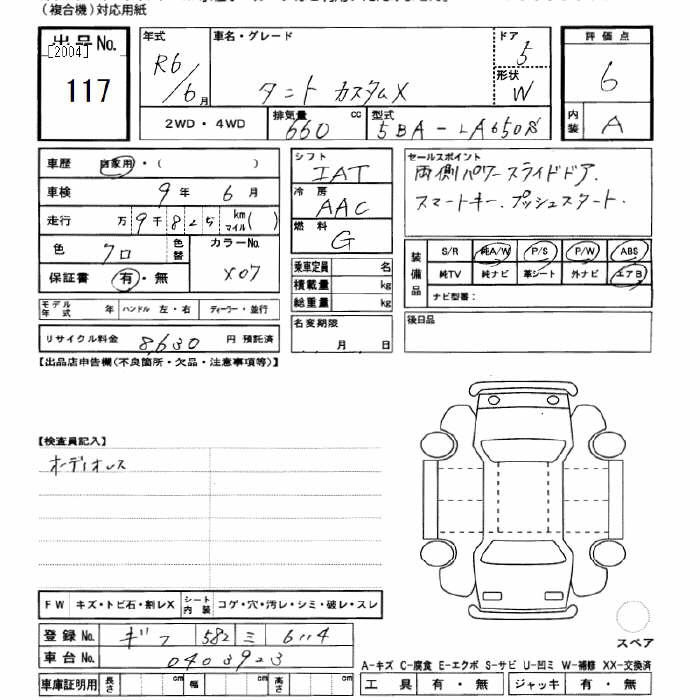 (複合機)対応用紙
出品No.
[2004]
117
年式
R6/6月
車名・グレード
タント カスタムX
ドア
5
形状
W
評価点
6
内装
A
2WD・4WD
排気量
660 cc
型式
5BA-LA650S
車歴 自家用・( )
車検 9年 6月
走行 万9千825 km マイル( )
色 クロ
色替
カラーNo.
X07
保証書 有・無
モデル年式 年 ハンドル 左・右 ディーラー・並行
リサイクル料金 8,630 円 預託済
シフト
IAT
冷房
AAC
燃料
G
乗車定員 名
積載量 kg
総重量 kg
名変期限
月 日
セールスポイント
両側パワースライドドア.
スマートキー. プッシュスタート.
装備品
S/R 純A/W P/S P/W ABS
純TV 純ナビ 革シート 外ナビ エアB
ナビ型番:
後日品
【出品店申告欄(不良箇所・欠品・注意事項等)】
【検査員記入】
オーディオレス
FW キズ・トビ石・割レX シート内装 コゲ・穴・汚レ・シミ・破レ・スレ
登録No. ギフ 582 ミ 6114
車台No. 0403923
車庫証明用 長さ cm 幅 cm 高さ cm
スペア
A-キズ C-腐食 E-エクボ S-サビ U-凹ミ W-補修 XX-交換済
工具 有・無 ジャッキ 有・無